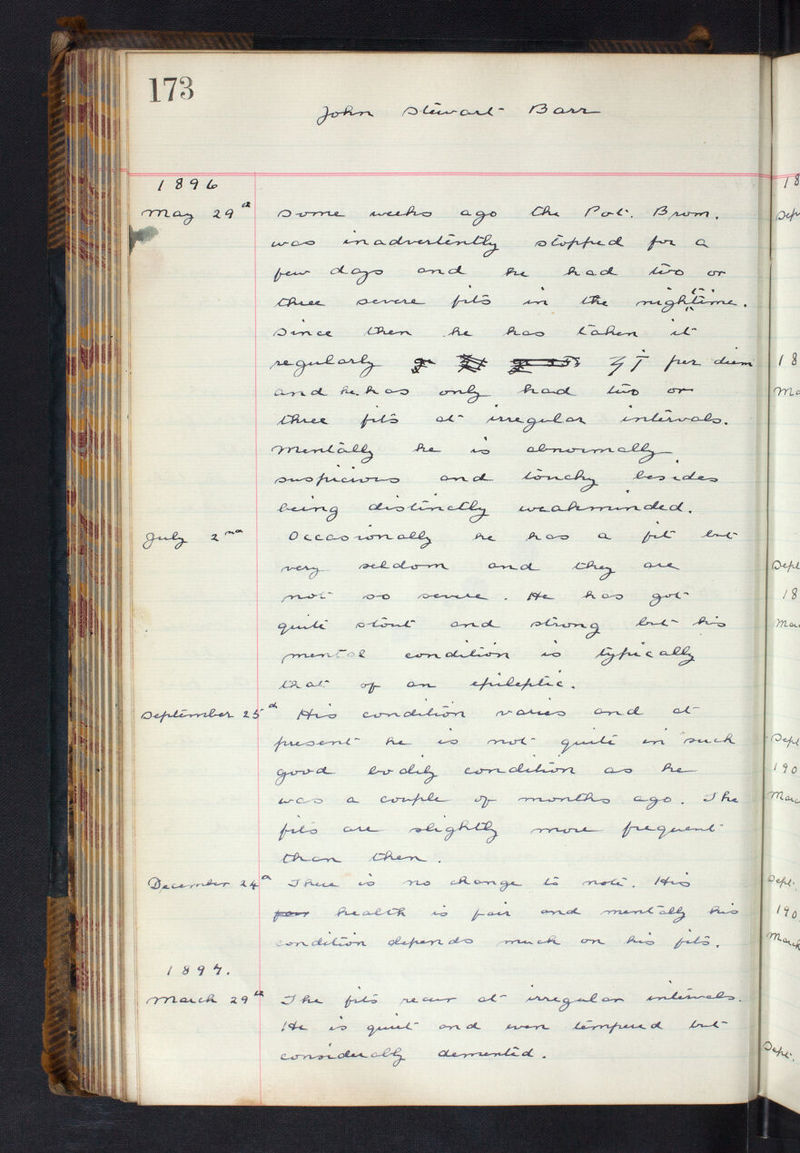 173
John Stewart Barr
1896
May 29th Some weeks ago the Pot. Brom.
was inadvertently stopped for a
few days and he had two or
three severe fits in the nighttime.
Since then he has taken it
regularly ʒ i per diem
and he has only had two or
three fits at irregular intervals.
Mentally he is abnormally
suspicious and touchy besides
being distinctly weakminded.
July 2nd Occasionally he has a fit but
very seldom and they are
not so severe. He has got
quite stout and strong but his
mental condition is typically
that of an epileptic.
September 25th His condition varies and at
present he is not quite in such
good bodily condition as he
was a couple of months ago. The
fits are slightly more frequent
than then.
December 24th There is no change to note. His
health is fair and mentally his
condition depends much on his fits.
1897.
March 29th The fits recur at irregular intervals.
He is quiet and even tempered but
considerably demented.
18
Sept
18
Ma
Sept
18
Mar
Sept
190
Marc
Sept.
190
March
Sept.